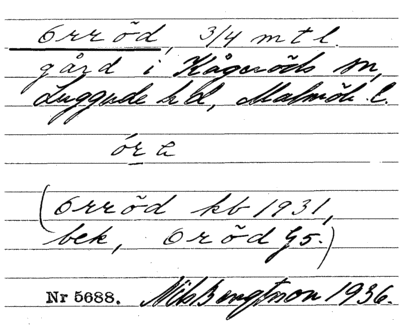 Orröd, 3/4 mtl.
gård i Kågeröds sn,
Luggude hd, Malmöh. l.
(Orröd kb 1931,
bek, Oröd G5.)
Nr 5688. Nils Bengtsson 1936.